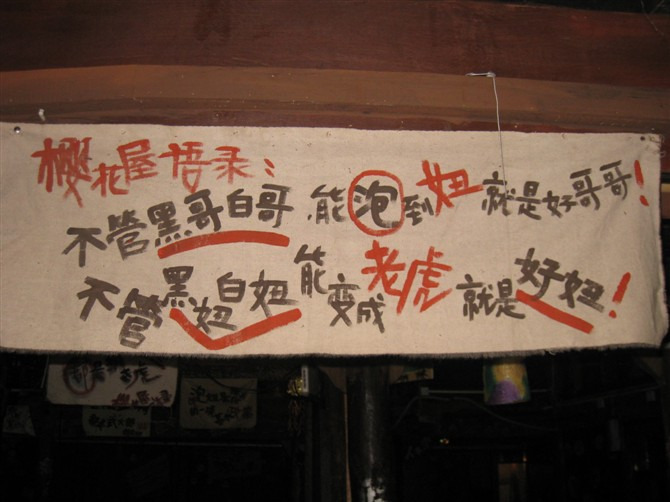 樱花屋语录：
不管黑哥白哥.能泡到妞就是好哥哥！
不管黑妞白妞能变成老虎就是好妞！